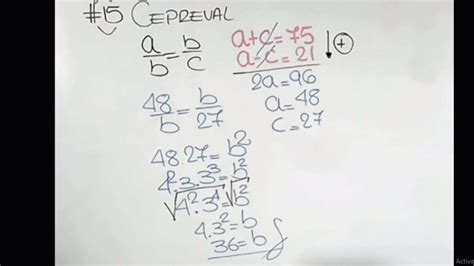 #15 CEPREVAL
a/b = b/c
a+c=75
a-c=21
↓⊕
2a=96
a=48
c=27
48/b = b/27
48.27=b²
4².3.3³=b²
√4².3⁴=√b²
4.3²=b
36=b
Activa